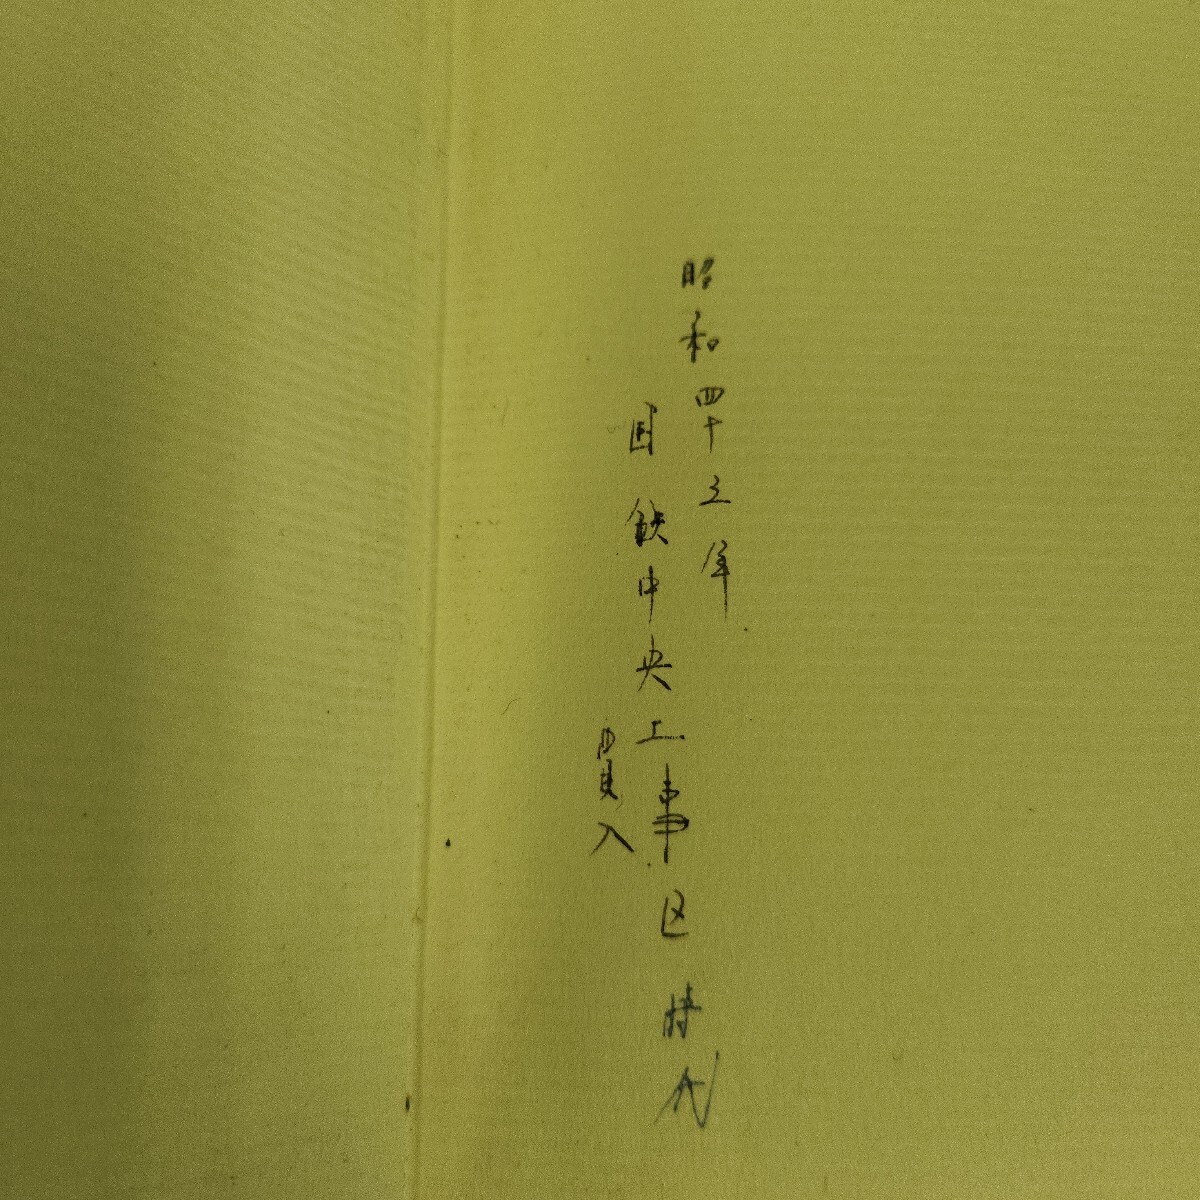 昭和四十三年
国鉄中央工事区時代
買入